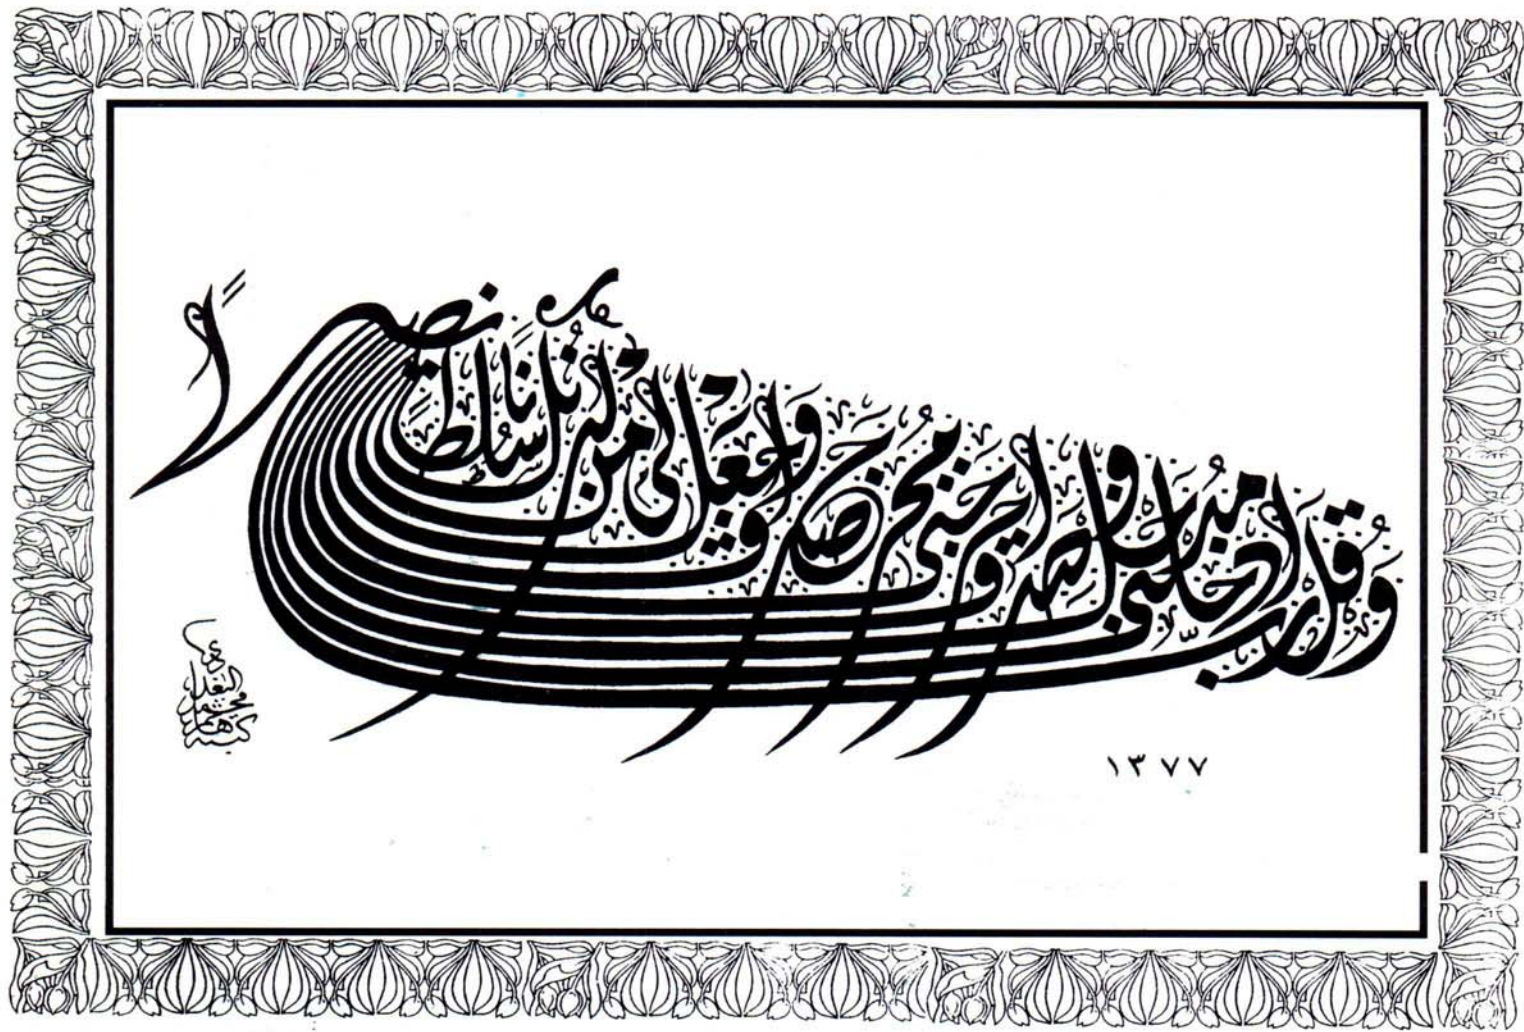 وَقُل رَّبِّ أَدْخِلْنِي مُدْخَلَ صِدْقٍ وَأَخْرِجْنِي مُخْرَجَ صِدْقٍ وَاجْعَل لِّي مِن لَّدُنكَ سُلْطَانًا نَّصِيرًا
١٣٧٧
كتبه هاشم محمد البغدادي